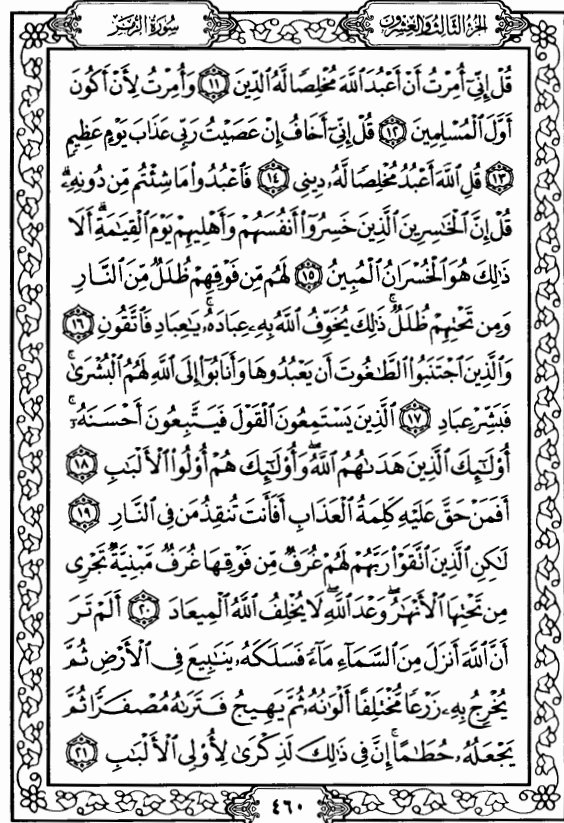 الجزء الثالث والعشرون
سورة الزمر
قُلْ إِنِّىٓ أُمِرْتُ أَنْ أَعْبُدَ ٱللَّهَ مُخْلِصًا لَّهُ ٱلدِّينَ ١١ وَأُمِرْتُ لِأَنْ أَكُونَ
أَوَّلَ ٱلْمُسْلِمِينَ ١٢ قُلْ إِنِّىٓ أَخَافُ إِنْ عَصَيْتُ رَبِّى عَذَابَ يَوْمٍ عَظِيمٍ
١٣ قُلِ ٱللَّهَ أَعْبُدُ مُخْلِصًا لَّهُۥ دِينِى ١٤ فَٱعْبُدُوا۟ مَا شِئْتُم مِّن دُونِهِۦ ۗ
قُلْ إِنَّ ٱلْخَـٰسِرِينَ ٱلَّذِينَ خَسِرُوٓا۟ أَنفُسَهُمْ وَأَهْلِيهِمْ يَوْمَ ٱلْقِيَـٰمَةِ ۗ أَلَا
ذَٰلِكَ هُوَ ٱلْخُسْرَانُ ٱلْمُبِينُ ١٥ لَهُم مِّن فَوْقِهِمْ ظُلَلٌ مِّنَ ٱلنَّارِ
وَمِن تَحْتِهِمْ ظُلَلٌ ۚ ذَٰلِكَ يُخَوِّفُ ٱللَّهُ بِهِۦ عِبَادَهُۥ ۚ يَـٰعِبَادِ فَٱتَّقُونِ ١٦
وَٱلَّذِينَ ٱجْتَنَبُوا۟ ٱلطَّـٰغُوتَ أَن يَعْبُدُوهَا وَأَنَابُوٓا۟ إِلَى ٱللَّهِ لَهُمُ ٱلْبُشْرَىٰ ۚ
فَبَشِّرْ عِبَادِ ١٧ ٱلَّذِينَ يَسْتَمِعُونَ ٱلْقَوْلَ فَيَتَّبِعُونَ أَحْسَنَهُۥٓ ۚ
أُو۟لَـٰٓئِكَ ٱلَّذِينَ هَدَىٰهُمُ ٱللَّهُ ۖ وَأُو۟لَـٰٓئِكَ هُمْ أُو۟لُوا۟ ٱلْأَلْبَـٰبِ ١٨
أَفَمَنْ حَقَّ عَلَيْهِ كَلِمَةُ ٱلْعَذَابِ أَفَأَنتَ تُنقِذُ مَن فِى ٱلنَّارِ ١٩
لَـٰكِنِ ٱلَّذِينَ ٱتَّقَوْا۟ رَبَّهُمْ لَهُمْ غُرَفٌ مِّن فَوْقِهَا غُرَفٌ مَّبْنِيَّةٌ تَجْرِى
مِن تَحْتِهَا ٱلْأَنْهَـٰرُ ۖ وَعْدَ ٱللَّهِ ۖ لَا يُخْلِفُ ٱللَّهُ ٱلْمِيعَادَ ٢٠ أَلَمْ تَرَ
أَنَّ ٱللَّهَ أَنزَلَ مِنَ ٱلسَّمَآءِ مَآءً فَسَلَكَهُۥ يَنَـٰبِيعَ فِى ٱلْأَرْضِ ثُمَّ
يُخْرِجُ بِهِۦ زَرْعًا مُّخْتَلِفًا أَلْوَٰنُهُۥ ثُمَّ يَهِيجُ فَتَرَىٰهُ مُصْفَرًّا ثُمَّ
يَجْعَلُهُۥ حُطَـٰمًا ۚ إِنَّ فِى ذَٰلِكَ لَذِكْرَىٰ لِأُو۟لِى ٱلْأَلْبَـٰبِ ٢١
٤٦٠